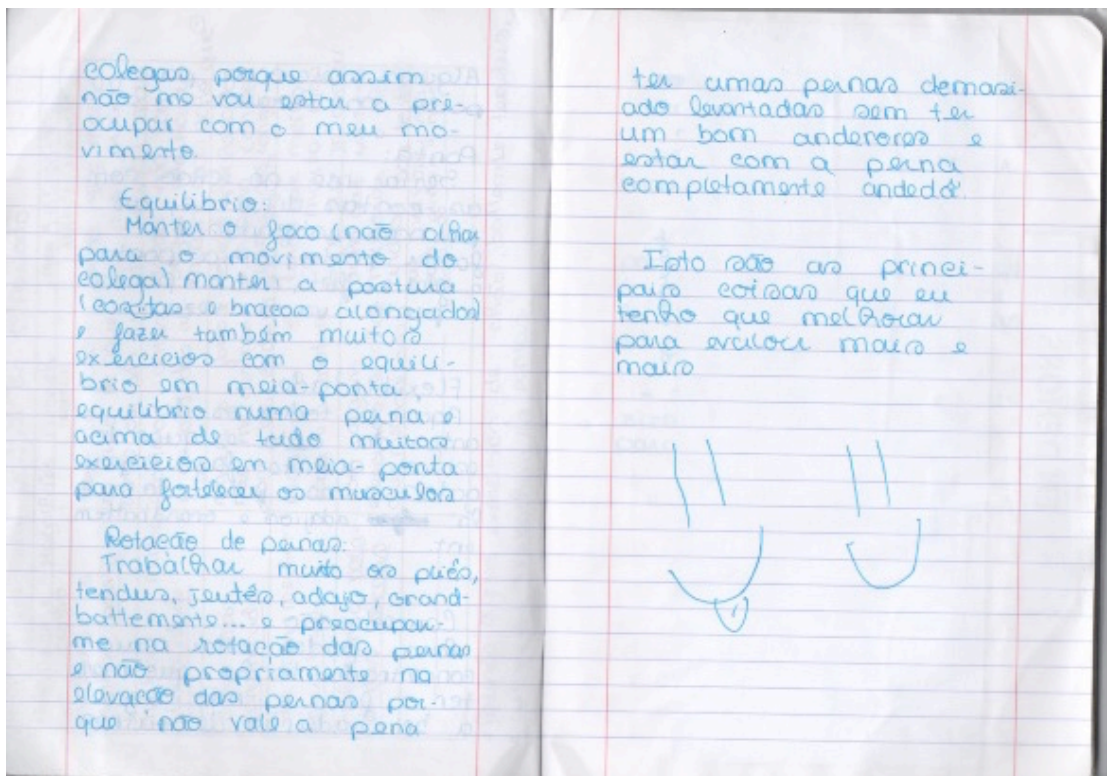 colegas porque assim
não me vou estar a pre-
ocupar com o meu mo-
vimento.
Equilibrio:
Manter o foco (não olhar
para o movimento do
colega) manter a postura
(costas e braços alongados)
e fazer também muitos
exercicios com o equili-
brio em meia-ponta,
equilibrio numa perna e
acima de tudo muitos
exercicios em meia-ponta
para fortelecer os musculos
Rotacão de pernas:
Trabalhar muito os pliés,
tendus, jeutés, adajo, grand-
battemente... e preocupar-
me na rotação das pernas
e não propriamente na
elevação das pernas por-
que não vale a pena
ter umas pernas demasi-
ado levantadas sem ter
um bom anderores e
estar com a perna
completamente andedá.
Isto são as princi-
pais coisas que eu
tenho que melhorar
para evoluir mais e
mais